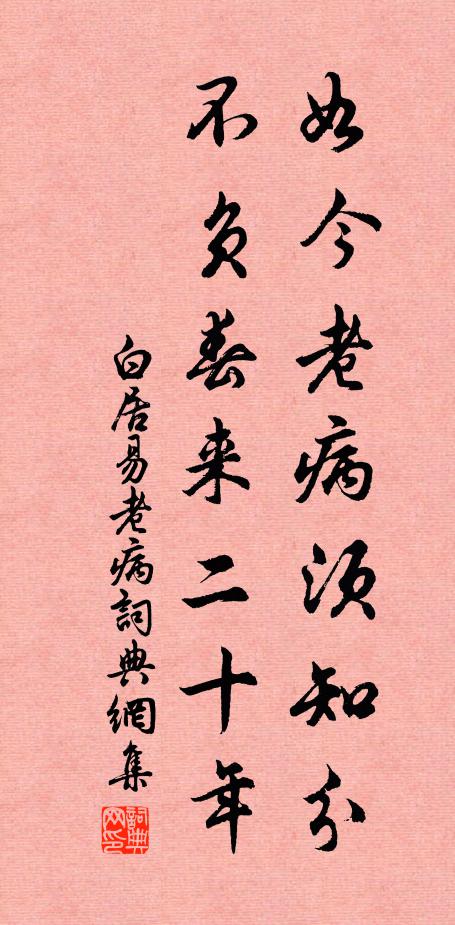 如今老病须知分
不负春来二十年
白居易老病詞典網集
詞典网印